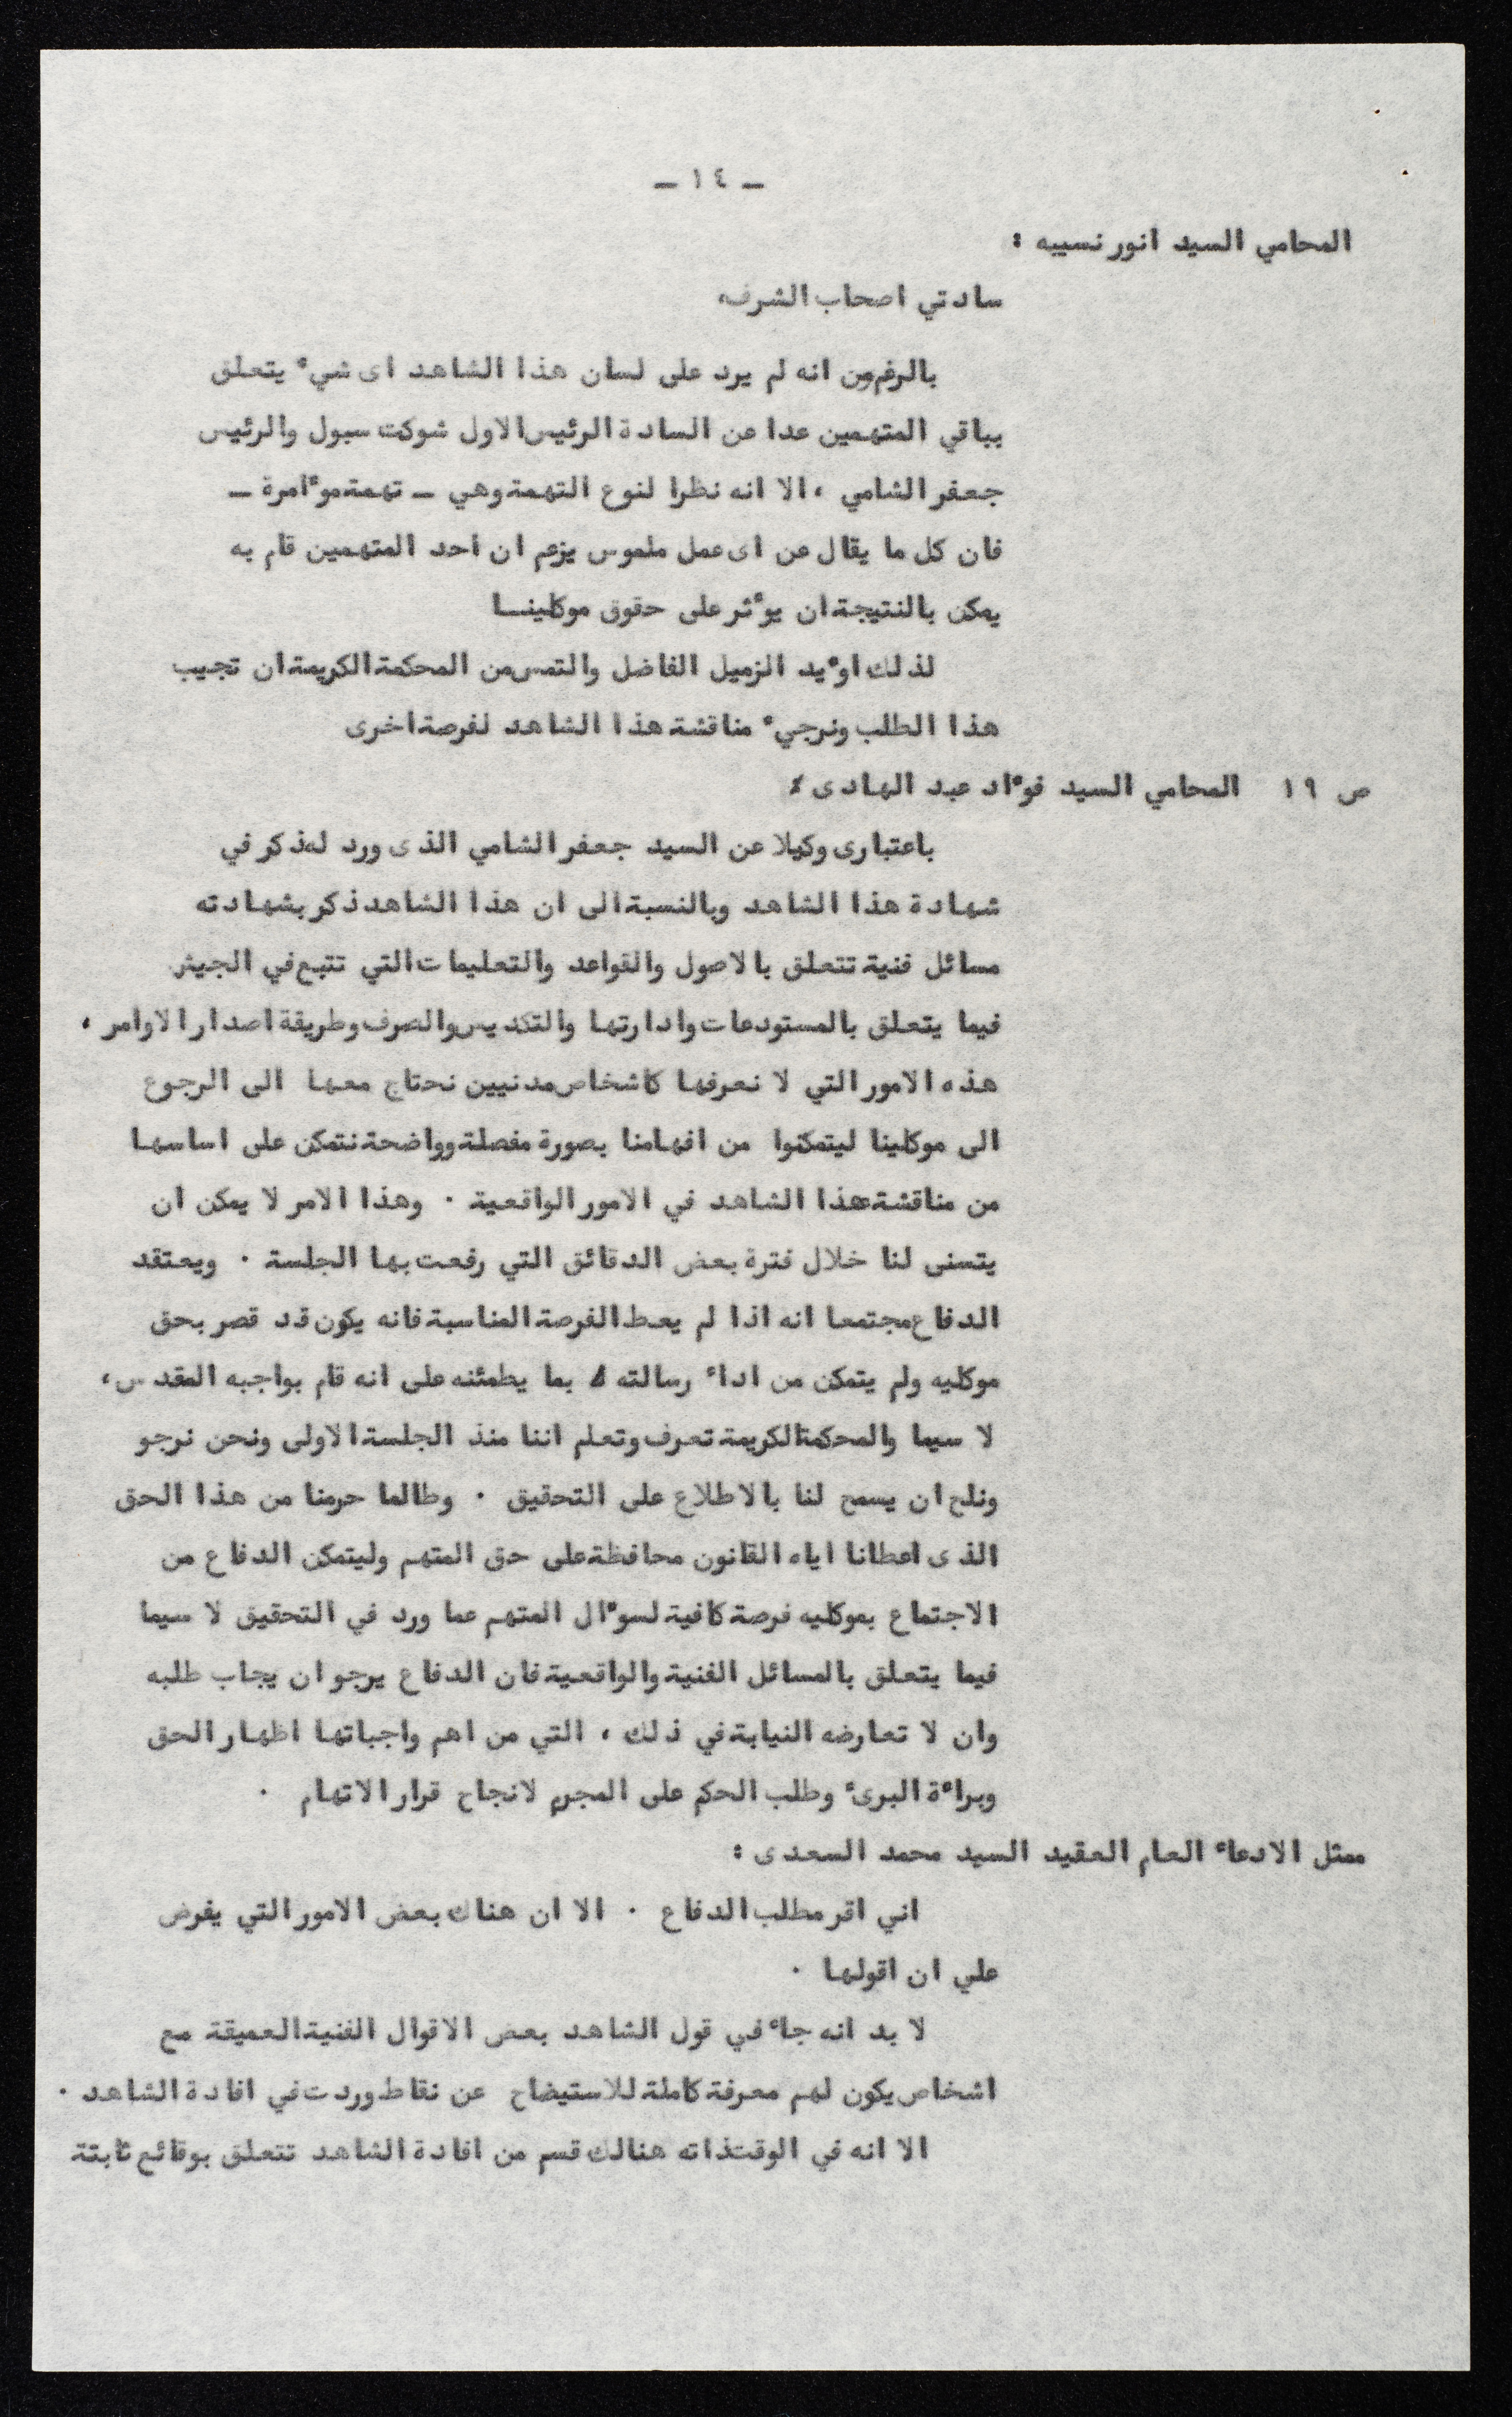 ـ ١٤ ـ
المحامي السيد انور نسيبه :
سادتي اصحاب الشرف،
بالرغم من انه لم يرد على لسان هذا الشاهد اى شيء يتعلق
بباقي المتهمين عدا عن السادة الرئيس الاول شوكت سبول والرئيس
جعفر الشامي ، الا انه نظرا لنوع التهمة وهي ـ تهمة موءامرة ـ
فان كل ما يقال عن اى عمل ملموس يزعم ان احد المتهمين قام به
يمكن بالنتيجة ان يوءثر على حقوق موكلينــا
لذلك اوءيد الزميل الفاضل والتمس من المحكمة الكريمة ان تجيب
هذا الطلب ونرجيء مناقشة هذا الشاهد لفرصة اخرى
ص ١٩ المحامي السيد فوءاد عبد الهادى :
باعتبارى وكيلا عن السيد جعفر الشامي الذى ورد له ذكر في
شهادة هذا الشاهد وبالنسبة الى ان هذا الشاهد ذكر بشهادته
مسائل فنية تتعلق بالاصول والقواعد والتعليمات التي تتبع في الجيش
فيما يتعلق بالمستودعات وادارتها والتكديس والصرف وطريقة اصدار الاوامر ،
هذه الامور التي لا نعرفها كاشخاص مدنيين نحتاج معها الى الرجوع
الى موكلينا ليتمكنوا من افهامنا بصورة مفصلة وواضحة نتمكن على اساسها
من مناقشة هذا الشاهد في الامور الواقعية ٠ وهذا الامر لا يمكن ان
يتسنى لنا خلال فترة بعض الدقائق التي رفعت بها الجلسة ٠ ويعتقد
الدفاع مجتمعا انه اذا لم يعط الفرصة المناسبة فانه يكون قد قصر بحق
موكليه ولم يتمكن من اداء رسالته بما يطمئنه على انه قام بواجبه المقدس،
لا سيما والمحكمة الكريمة تعرف وتعلم اننا منذ الجلسة الاولى ونحن نرجو
ونلح ان يسمح لنا بالاطلاع على التحقيق ٠ وطالما حرمنا من هذا الحق
الذى اعطانا اياه القانون محافظة على حق المتهم وليتمكن الدفاع من
الاجتماع بموكليه فرصة كافية لسوءال المتهم عما ورد في التحقيق لا سيما
فيما يتعلق بالمسائل الفنية والواقعية فان الدفاع يرجو ان يجاب طلبه
وان لا تعارضه النيابة في ذلك ، التي من اهم واجباتها اظهار الحق
وبراءة البرىء وطلب الحكم على المجرم لانجاح قرار الاتهام ٠
ممثل الادعاء العام العقيد السيد محمد السعدى :
اني اقر مطلب الدفاع ٠ الا ان هناك بعض الامور التي يفرض
علي ان اقولها ٠
لا بد انه جاء في قول الشاهد بعض الاقوال الفنية العميقة مع
اشخاص يكون لهم معرفة كاملة للاستيضاح عن نقاط وردت في افادة الشاهد ٠
الا انه في الوقت ذاته هنالك قسم من افادة الشاهد تتعلق بوقائع ثابتة